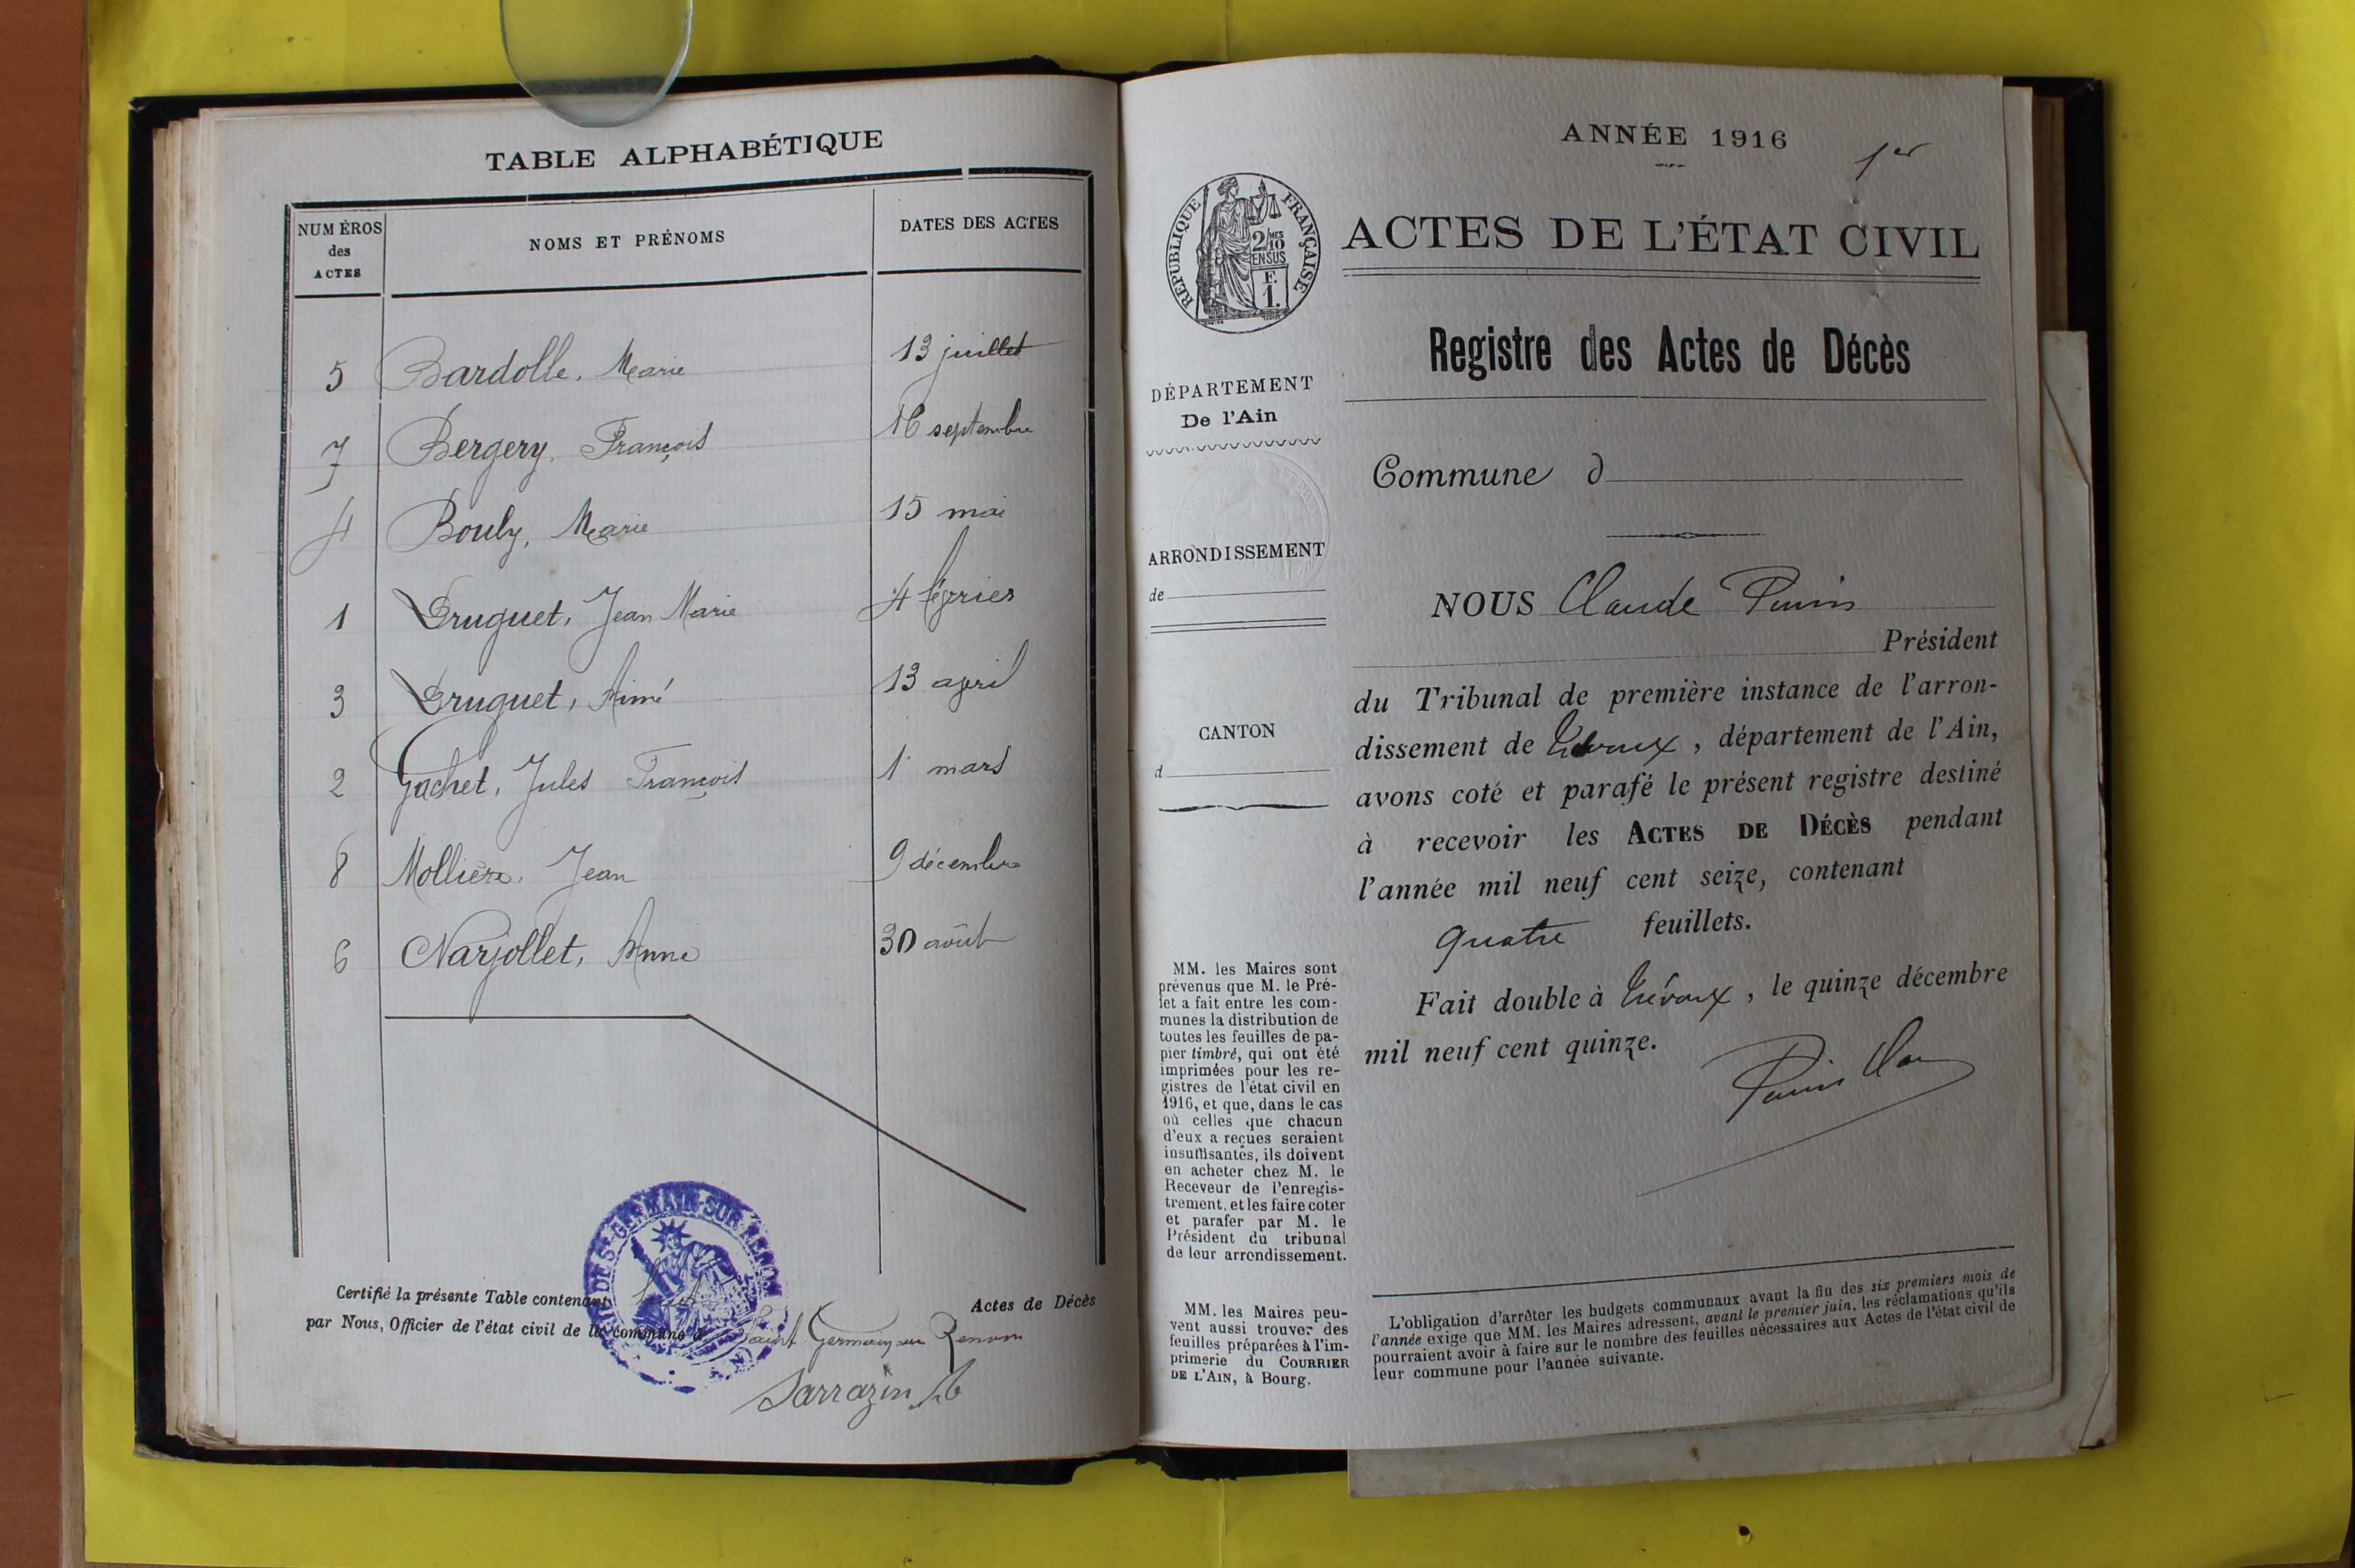 TABLE ALPHABÉTIQUE
NUMÉROS
des
ACTES
NOMS ET PRÉNOMS
DATES DES ACTES
5 Bardolle, Marie 13 juillet
7 Bergery, François 16 septembre
4 Bouly, Marie 15 mai
1 Druguet, Jean Marie 4 février
3 Druguet, Aimé 13 avril
2 Gachet, Jules François 1 mars
8 Mollière, Jean 9 décembre
6 Narjollet, Anne 30 août
Certifié la présente Table contenant Actes de Décès
par Nous, Officier de l'état civil de la commune d Saint Germain sur Renom
Sarrazin
ANNÉE 1916
1er
RÉPUBLIQUE FRANÇAISE
2/MES
10
EN SUS
F.
1.
ACTES DE L'ÉTAT CIVIL
Registre des Actes de Décès
DÉPARTEMENT
De l'Ain
Commune d
ARRONDISSEMENT
de
CANTON
d
NOUS Claude
Président
du Tribunal de première instance de l'arron-
dissement de Trévoux, département de l'Ain,
avons coté et parafé le présent registre destiné
à recevoir les ACTES DE DÉCÈS pendant
l'année mil neuf cent seize, contenant
quatre feuillets.
Fait double à Trévoux, le quinze décembre
mil neuf cent quinze.
MM. les Maires sont
prévenus que M. le Pré-
fet a fait entre les com-
munes la distribution de
toutes les feuilles de pa-
pier timbré, qui ont été
imprimées pour les re-
gistres de l'état civil en
1916, et que, dans le cas
où celles que chacun
d'eux a reçues seraient
insuffisantes, ils doivent
en acheter chez M. le
Receveur de l'enregis-
trement, et les faire coter
et parafer par M. le
Président du tribunal
de leur arrondissement.
MM. les Maires peu-
vent aussi trouver des
feuilles préparées à l'im-
primerie du COURRIER
DE L'AIN, à Bourg.
L'obligation d'arrêter les budgets communaux avant la fin des six premiers mois de
l'année exige que MM. les Maires adressent, avant le premier juin, les réclamations qu'ils
pourraient avoir à faire sur le nombre des feuilles nécessaires aux Actes de l'état civil de
leur commune pour l'année suivante.